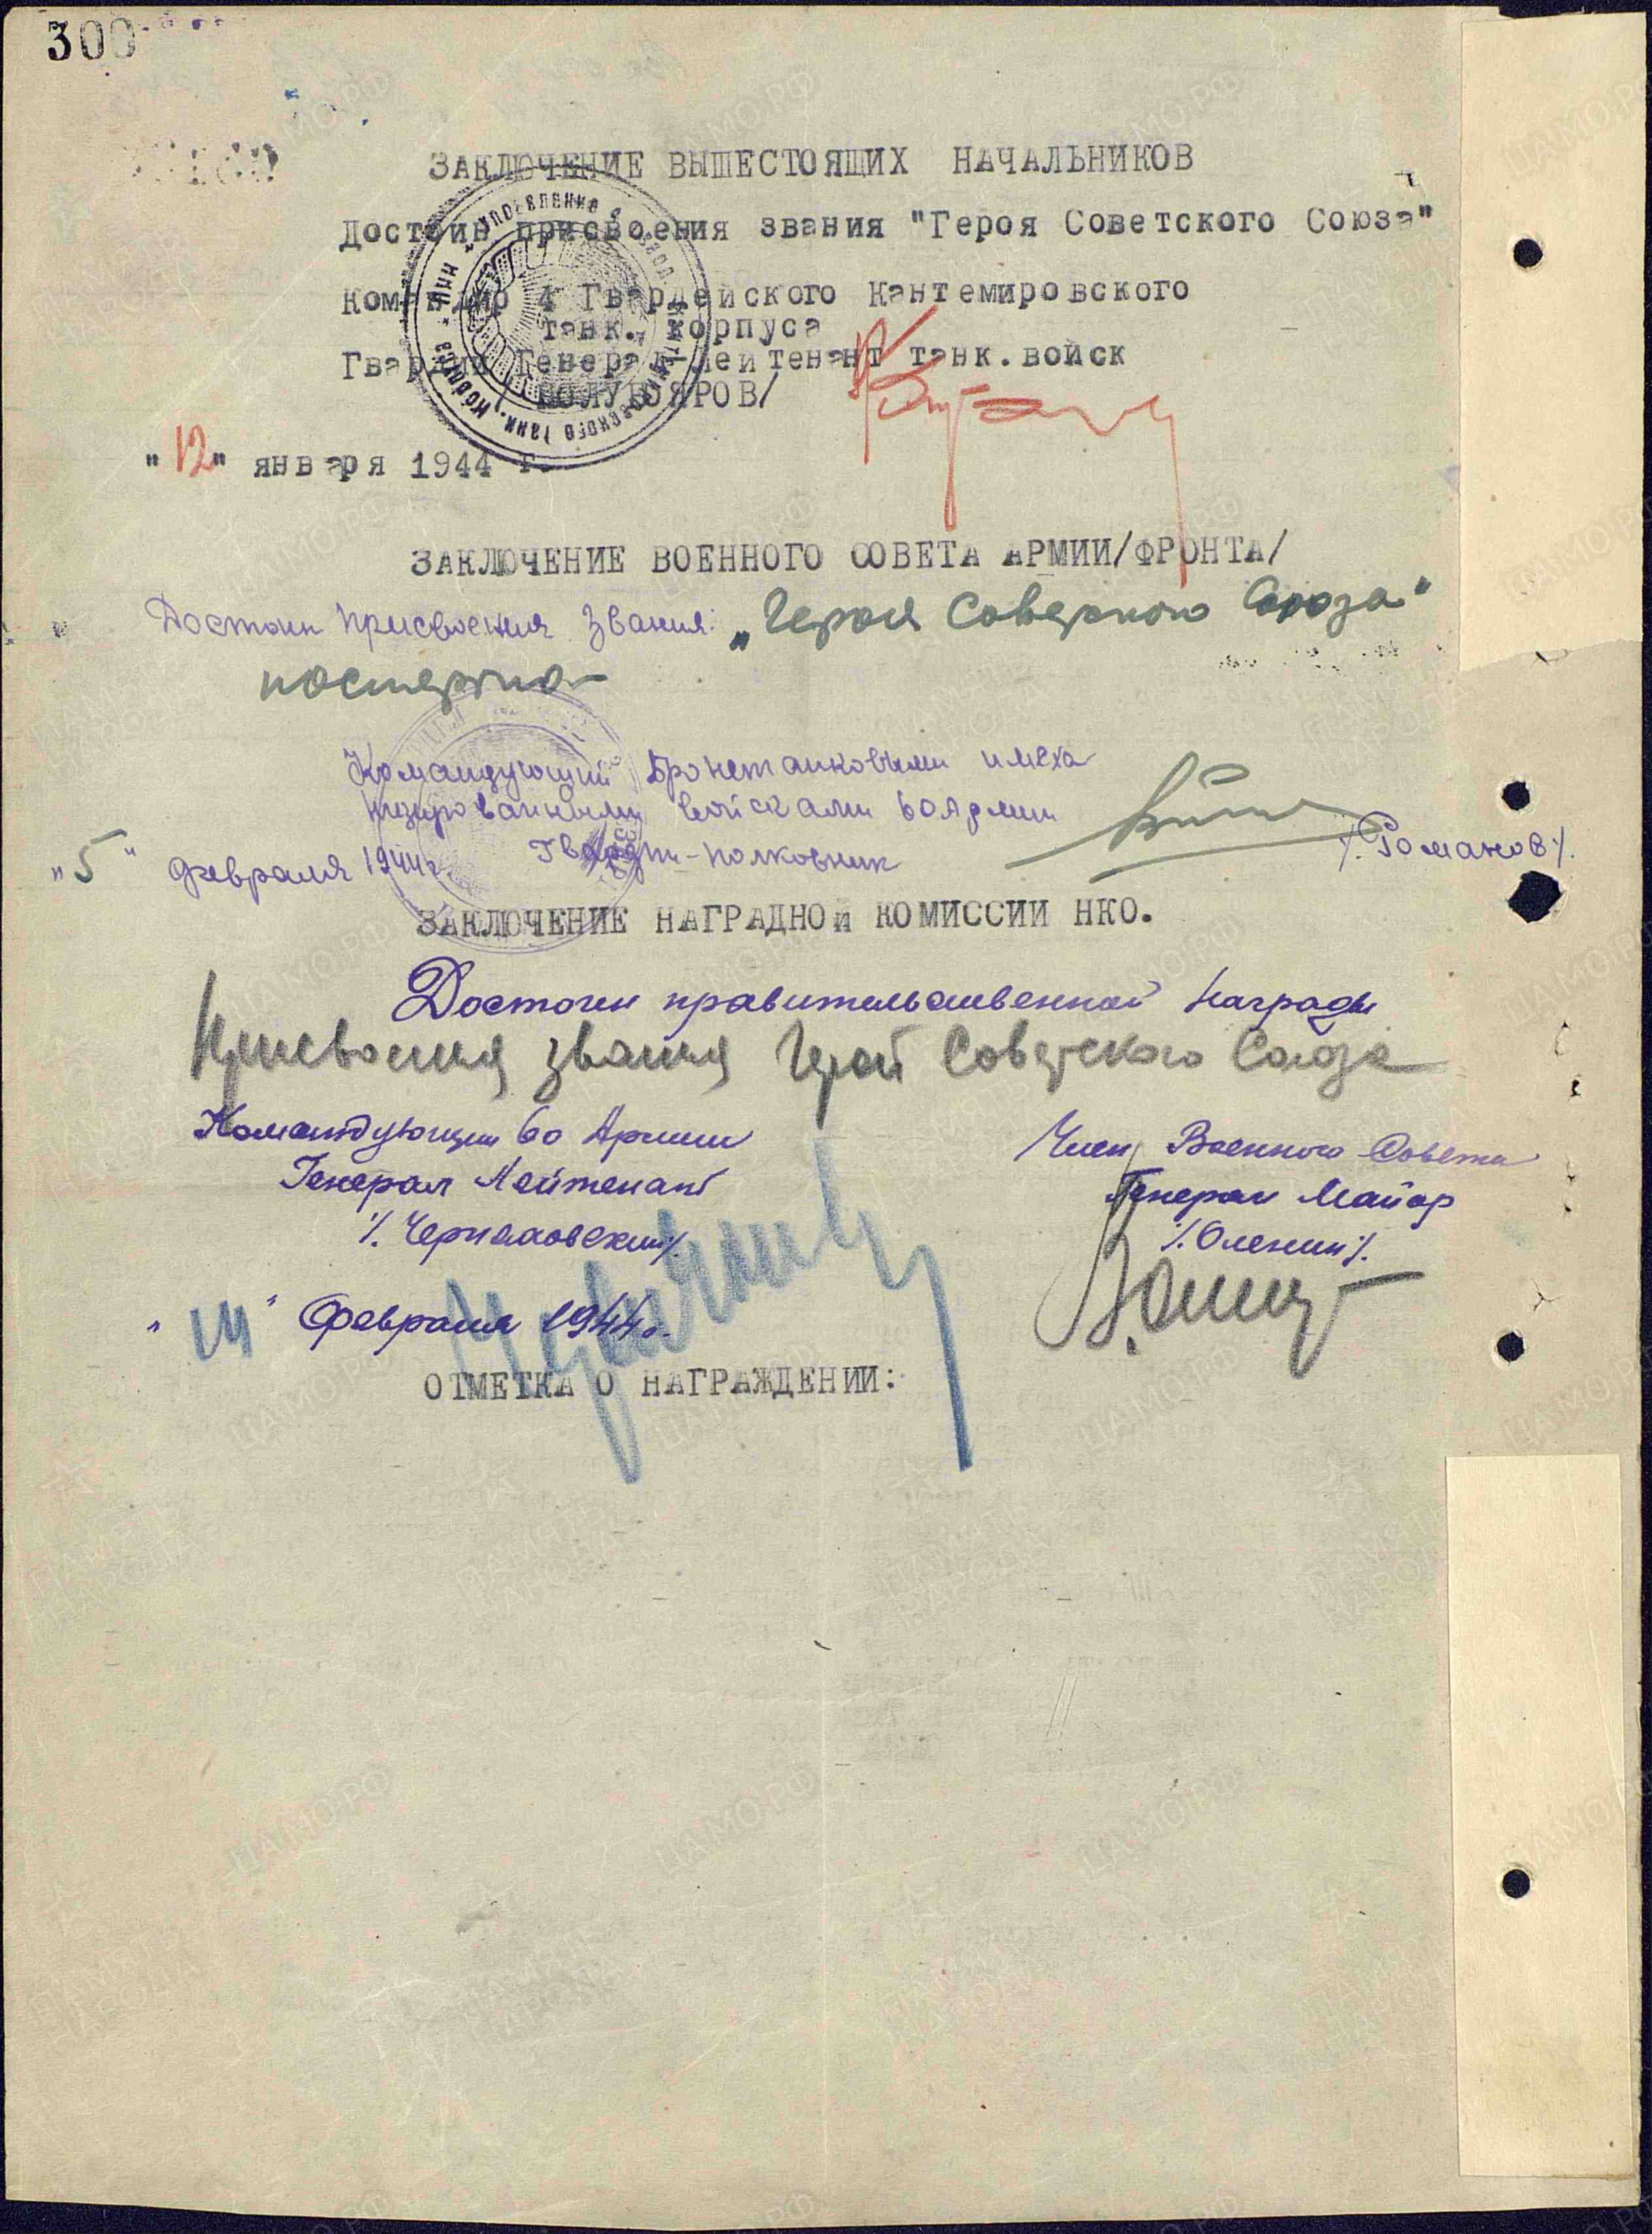 300
ЗАКЛЮЧЕНИЕ ВЫШЕСТОЯЩИХ НАЧАЛЬНИКОВ
Достоин присвоения звания "Героя Советского Союза"
Командир 4 Гвардейского Кантемировского
танк. корпуса
Гвардии Генерал лейтенант танк. войск
/ПОЛУБОЯРОВ/
"12" января 1944 г.
ЗАКЛЮЧЕНИЕ ВОЕННОГО СОВЕТА АРМИИ/ФРОНТА/
Достоин присвоения звания: „Героя Советского Союза"
посмертно
Командующий Бронетанковыми и меха
низированными войсками 60 Армии
Гвардии-полковник
/.Романов/.
"5" февраля 1944 г.
ЗАКЛЮЧЕНИЕ НАГРАДНОЙ КОМИССИИ НКО.
Достоин правительственной награды
присвоения звания Герой Советского Союза
Командующий 60 Армии
Генерал Лейтенант
/.Черняховский/.
Член Военного Совета
Генерал Майор
/.Оленин/.
" " Февраля 1944 г.
ОТМЕТКА О НАГРАЖДЕНИИ: